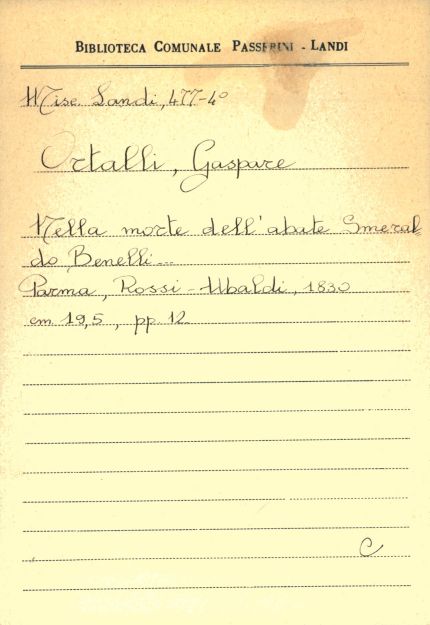 BIBLIOTECA COMUNALE PASSERINI - LANDI
Misc. Landi, 477-4º
Ortalli, Gaspare
Nella morte dell'abate Smeral
do Benelli...
Parma, Rossi-Ubaldi, 1830
cm 19,5, pp. 12
C